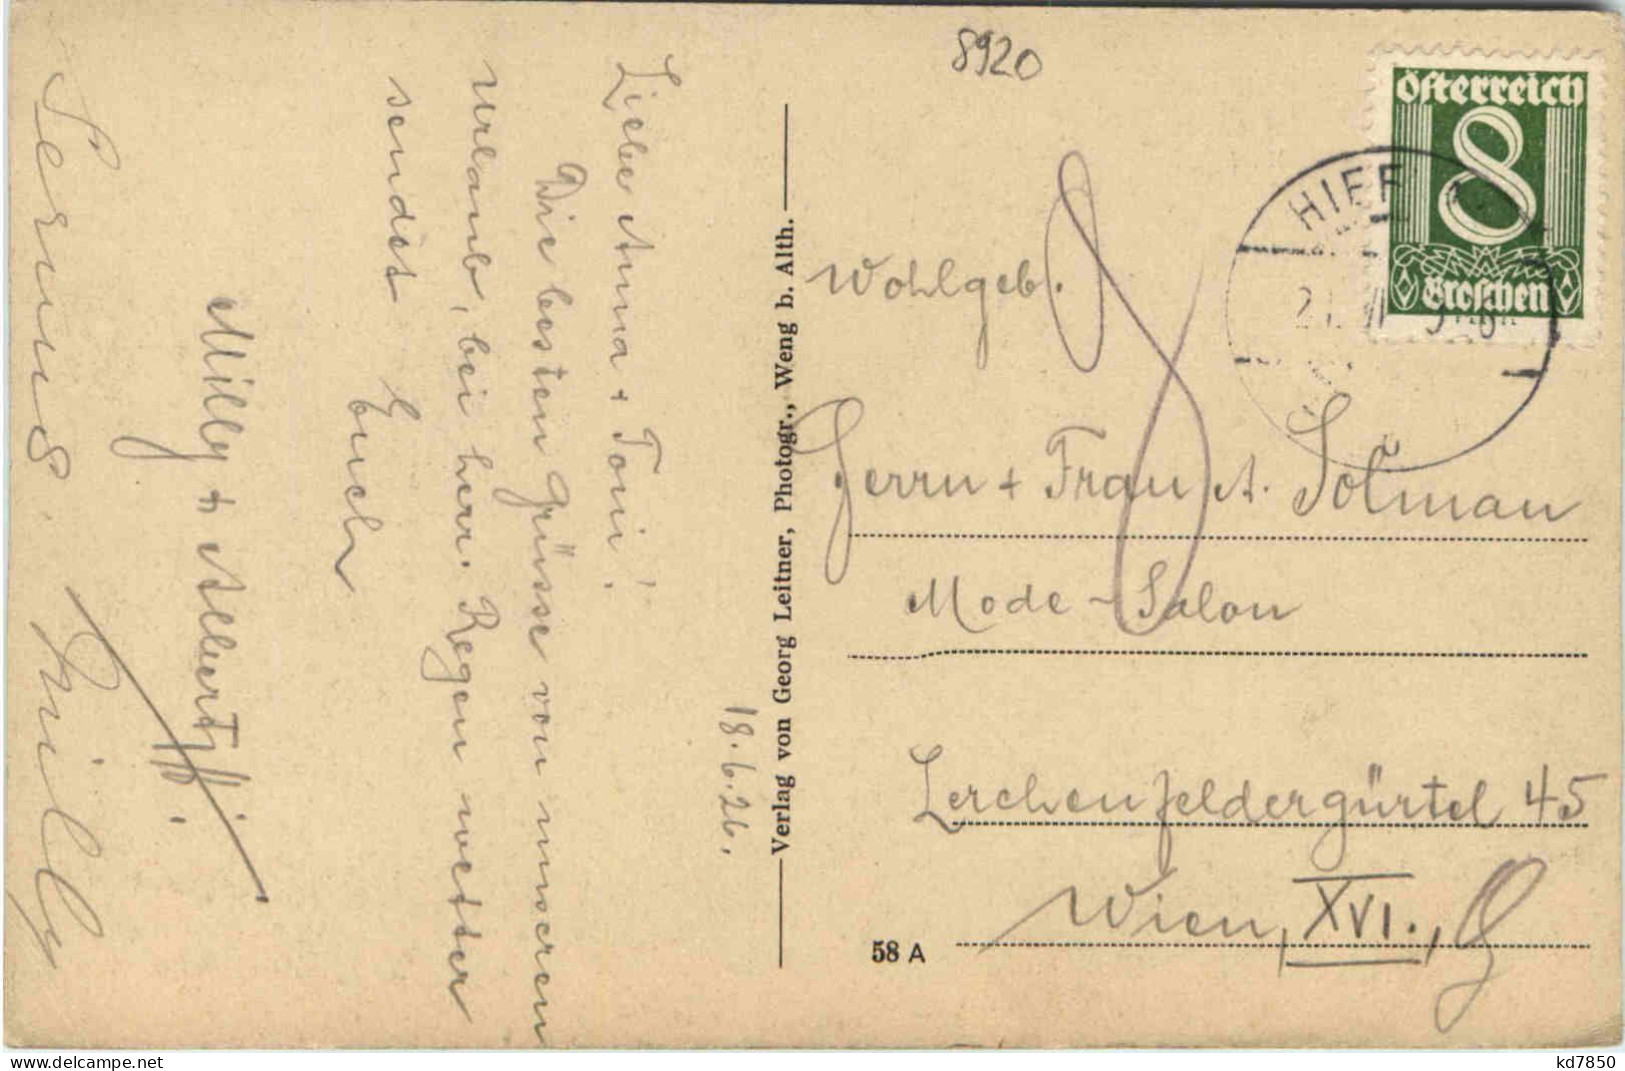 8920
österreich
8
Groschen
HIEF
18.6.26.
Liebe Anna + Toni!
Die besten Grüsse von unseren
Urlaub, bei herr. Regen wetter
sendet Euch
Milly + Albert.
Servus Milly
Verlag von Georg Leitner, Photogr., Weng b. Alth.
Wohlgeb.
Herrn + Frau A.
Mode-Salon
Lerchenfeldergürtel 45
Wien, XVI.,
58 A
www.delcampe.net
kd7850